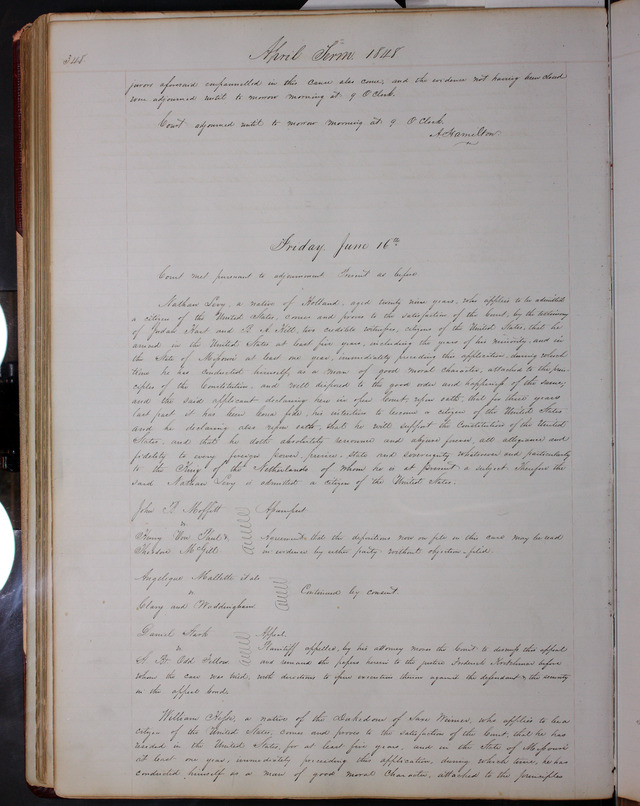 348
April Term 1848
jurors aforesaid empannelled in this cause also come, and the evidence not having been closed
were adjourned until to morrow morning at 9 O Clock.
Court adjourned until to morrow morning at 9 O Clock
A Hamilton
Friday June 16th
Court met pursuant to adjournment. Present as before
Nathan Levy, a native of Holland, aged twenty nine years, who applies to be admitted
a citizen of the United States, comes and proves to the satisfaction of the Court, by the testimony
of Judah and A Hill, two credible witnesses, citizens of the United States, that he
arrived in the United States at least five years, including the years of his minority, and in
the State of Missouri at least one year, immediately preceding this application, during which
time he has conducted himself, as a man of good moral character, attached to the prin-
ciples of the Constitution, and well disposed to the good order and happiness of the same,
and the said applicant declaring here in open Court upon oath, that for three years
last past it has been bona fide, his intention to become a citizen of the United States
and he declaring also upon oath, that he will support the Constitution of the United
States, and that he doth absolutely renounce and abjure forever, all allegiance and
fidelity to every foreign power, prince, state and sovereignty whatsoever and particularly
to the King of the Netherlands of whom he is at present a subject. Therefore the
said Nathan Levy is admitted a citizen of the United States.
John B. Moffitt
vs
Henry Von Phul &
Theodore McGill
Assumpsit
Agreement that the depositions now on file in this case may be read
in evidence by either party without objection filed.
Angelique Mallette et als
vs
Clary and Waddingham
Continued by consent.
Daniel Hack
vs
A. B. Odd Fellow
Appeal.
Plaintiff appellee, by his attorney moves the Court to dismiss this appeal
and remand the papers herein to the justice Frederick before
whom the case was tried, with directions to issue execution thereon against the defendant & the security
in the appeal bond.
William Hesse, a native of the Dukedom of Saxe Weimar, who applies to be a
citizen of the United States, comes and proves to the satisfaction of the Court, that he has
resided in the United States, for at least five years, and in the State of Missouri
at least one year, immediately preceding this application, during which time, he has
conducted himself as a man of good moral character, attached to the principles